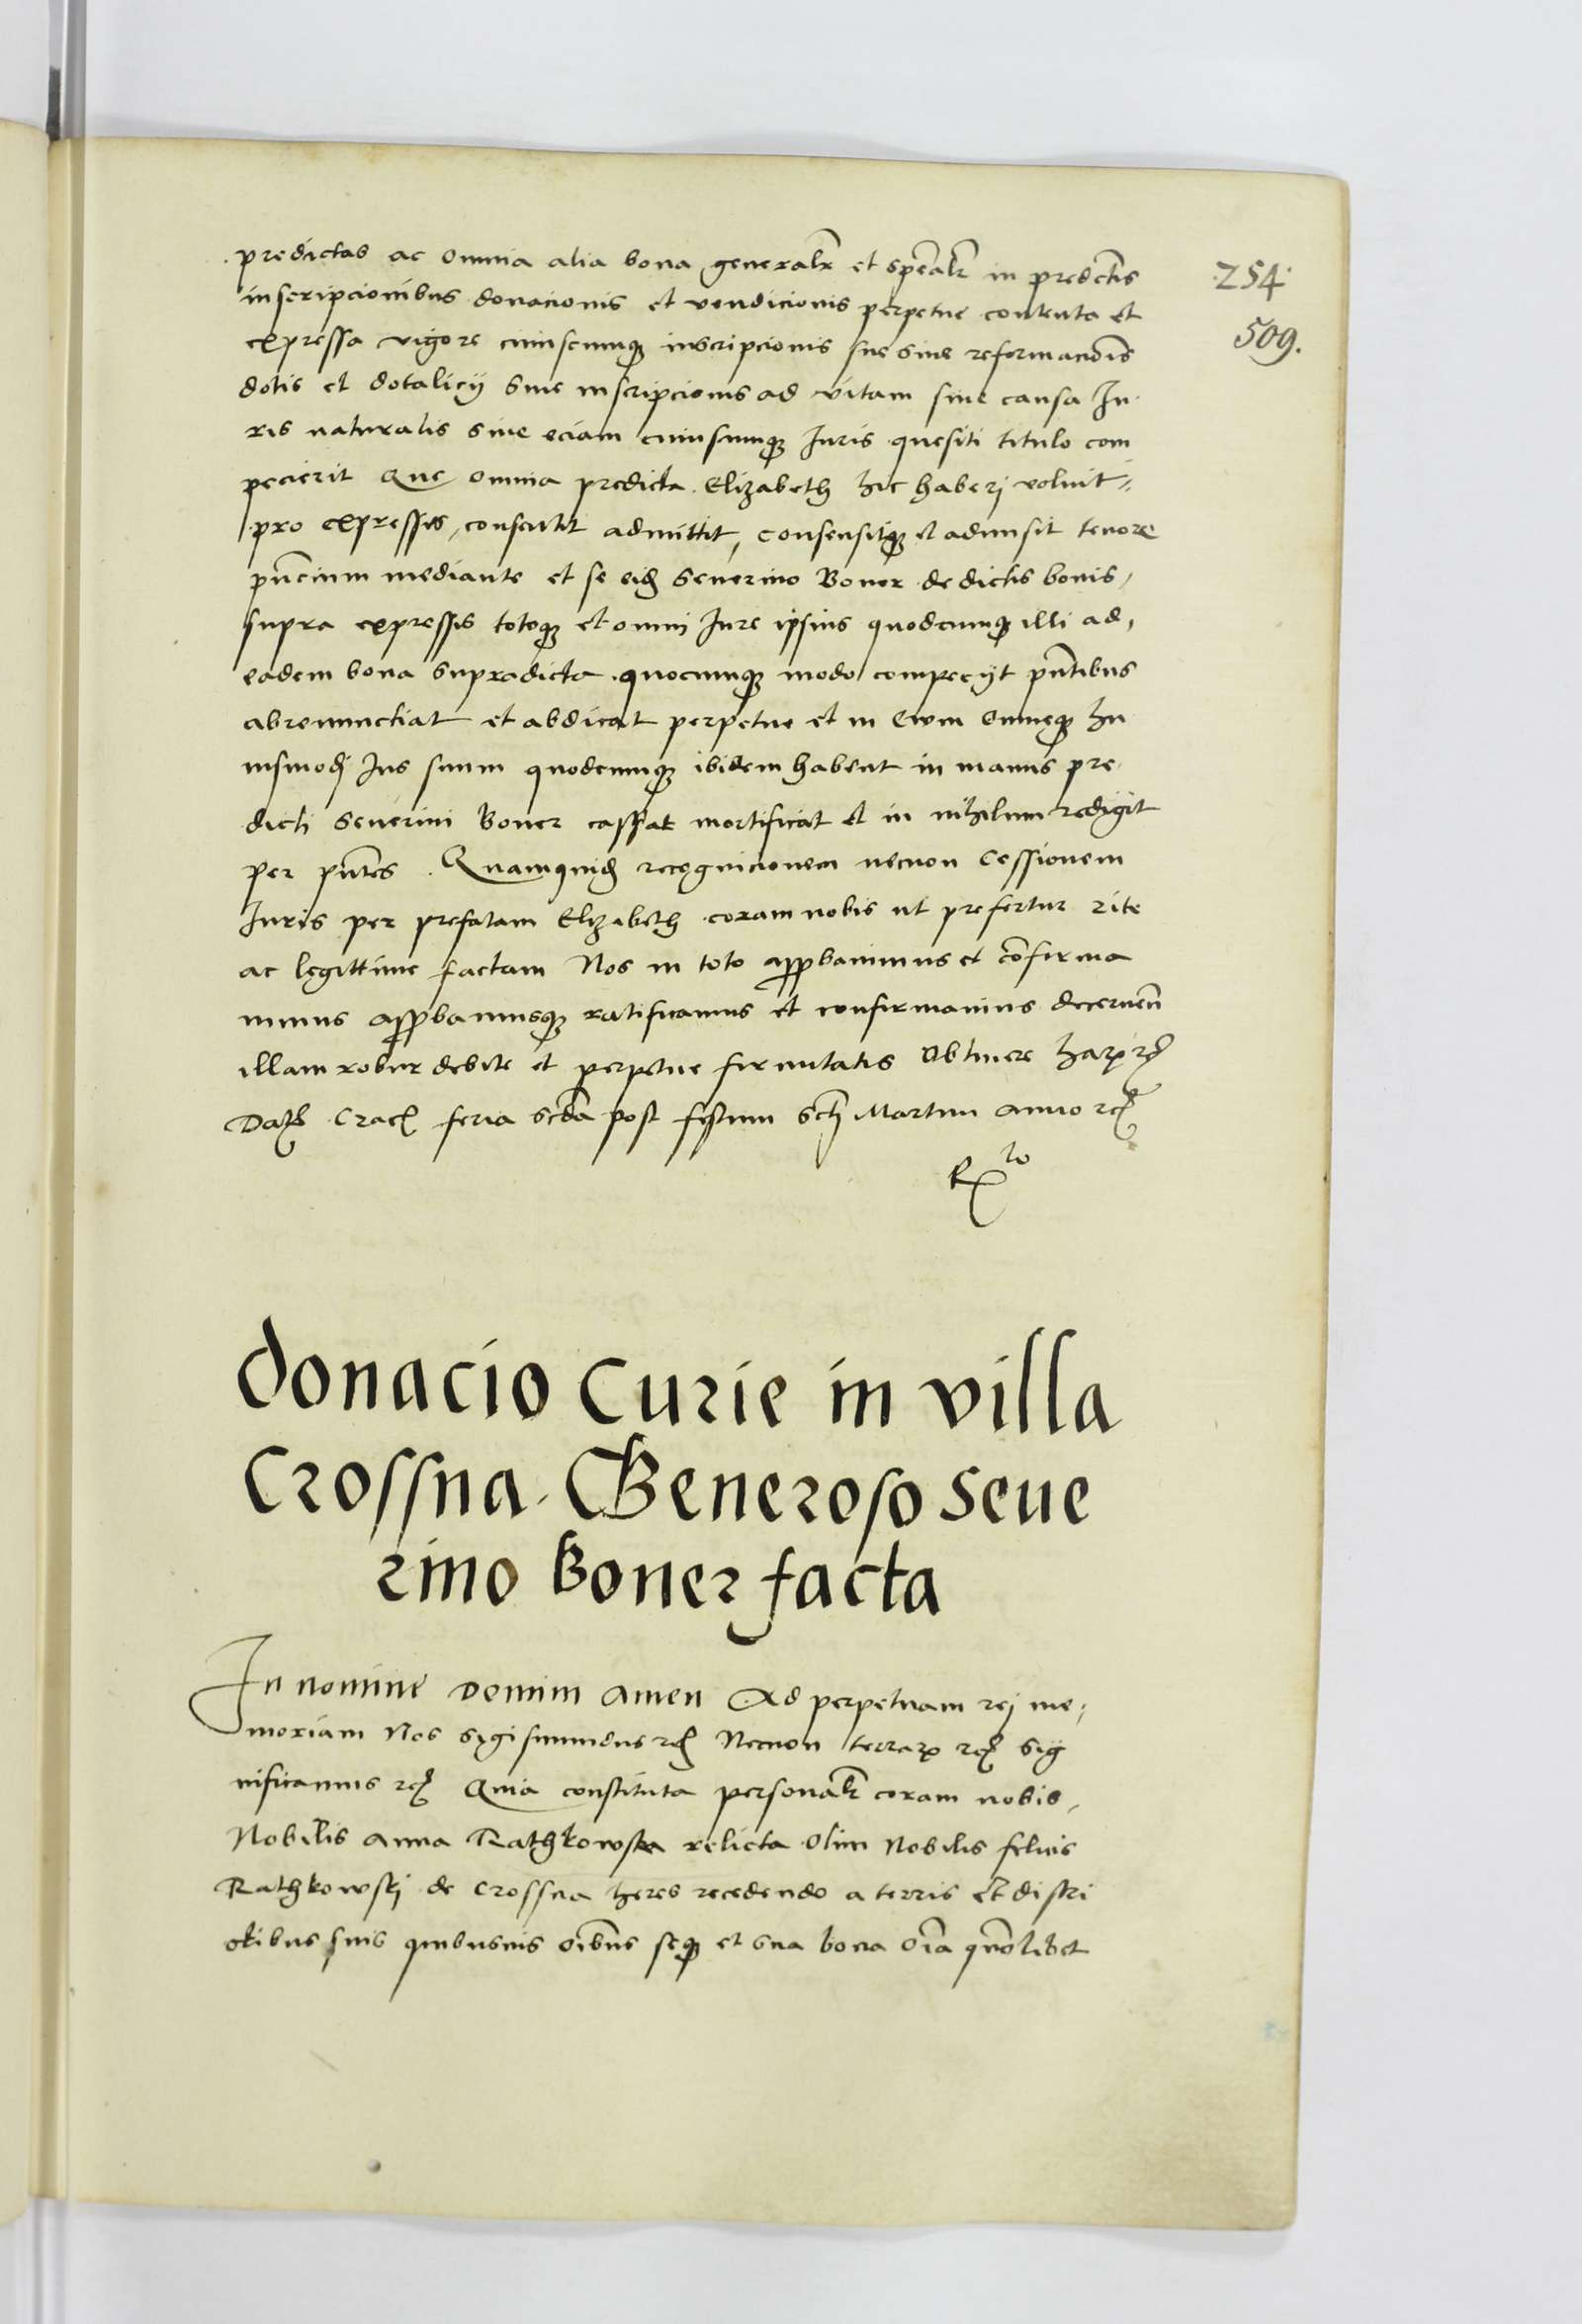 predictas ac omnia alia bona generalr et spealr in predctis
254
inscripcionibus donacionis et vendicionis perpetue contenta et
509.
expressa vigore cuiuscunq inscripcionis sue sive reformacionis
dotis et dotalicij sive inscripcionis ad vitam sive causa Ju
ris naturalis sive eciam cuiuscumq Juris quesiti titulo com
pecierit Que omnia predicta Elizabeth hic haberj voluit
pro expressis, consentit admittit, consensitq et admisit tenore
pncium mediante et se eid Severino Boner de dictis bonis,
supra expressis totoq et omni Jure ipsius quodcumq illi ad,
eadem bona supradicta quocumq modo compecijt pntibus
abrenunctiat et abdicat perpetue et in Eum Omneq hu
iusmodj Jus suum quodcumq ibidem habent in manus pre
dicti Severini Boner cassat mortificat et in nihilum redigit
per pntes. Quamquid recognicionem necnon Cessionem
Juris per prefatam Elizabeth coram nobis ut prefertur rite
ac legittime factam Nos in toto approbavimus et confirma
vimus approbamusq ratificamus et confirmamus decernen
illam robur debite et perpetue firmitatis Obtinere harum rc
Dat Crac feria scda post festum scti Martini anno rc
Rto
donacio Curie in villa
Crossna. Generoso Seue
rino Boner facta
In nomine Domini Amen Ad perpetuam rej me,
moriam Nos Sigismundus rc Necnon terrarum rc Sig
nificamus rc Quia constituta personalr coram nobis,
Nobilis Anna Rathkowska relicta Olim Nobilis felicis
Rathkowskj de Crossna heres recedendo a terris et distri
ctibus suis quibusvis oibus seq et sua bona oia quolibet